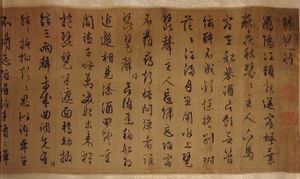 琵琶行
潯陽江頭夜送客楓葉
荻花秋瑟瑟主人下馬
客在船舉酒欲飲無管
絃醉不成歡慘將別別時
茫茫江浸月忽聞水上琵
琶聲主人忘歸客
不發尋聲暗問彈者誰
琵琶聲停欲語遲移船相
近邀相見添酒回燈重
開宴千呼萬喚始出來猶
抱琵琶半遮面轉軸撥
絃三兩聲未成曲調先有